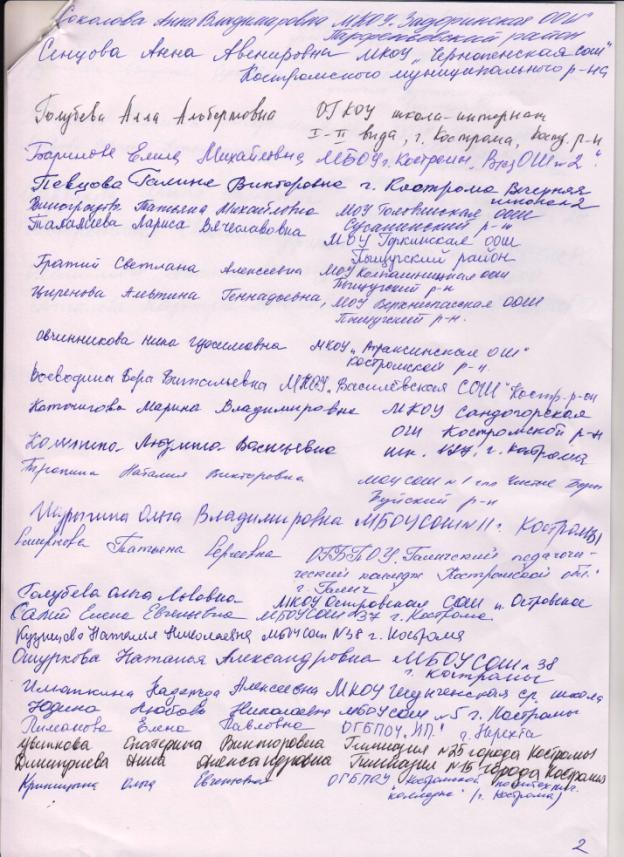 Соколова Анна Владимировна МКОУ "Задоринская ООШ"
Парфеньевский район
Сенцова Анна Авенировна МКОУ "Чернопенская СОШ"
Костромского муниципального р-на
Голубева Алла Альбертовна ОГКОУ школа-интернат
I-II вида, г. Кострома, Кост. р-н
Баринова Елена Михайловна МБОУ г. Костромы, В(с)ОШ №2".
Певцова Галина Викторовна г. Кострома Вечерняя
школа 2
Виноградова Татьяна Михайловна МОУ Головинская ООШ
Сусанинский р-н
Талашева Лариса Вячеславовна
МОУ Горкинская ООШ
Пыщугский район
Братий Светлана Алексеевна МОУ
Пыщугский р-н
Цыренова Альбина Геннадьевна, МОУ Верхнеспасская ООШ
Пыщугский р-н.
Овчинникова Нина МКОУ "Апраксинская ОШ"
Костромской р-н
Воеводина Вера Витальевна МКОУ "Василёвская СОШ" Костр. р-он
Каточигова Марина Владимировна МКОУ Сандогорская
ОШ Костромской р-н
Людмила Васильевна шк. №27 г. Кострома
Тропина Наталия Викторовна МОУ СОШ №1 Чистые Боры
Буйский р-н
Ольга Владимировна МБОУ СОШ №11 г. Костромы
Смирнова Татьяна Сергеевна ОГБПОУ "Галичский педагоги-
ческий колледж Костромской обл."
г. Галич
Голубева Ольга Львовна МКОУ Островская СОШ п. Островское
Елена Евгеньевна МБОУ СОШ №37 г. Кострома
Кузнецова Наталия Николаевна МБОУ СОШ №38 г. Кострома
Ошуркова Наталья Александровна МБОУ СОШ №38
г. Костромы
Надежда Алексеевна МКОУ ср. школа
Юдина Любовь Николаевна МБОУ СОШ №5 г. Костромы
Пиманова Елена Павловна ОГБПОУ г. Нерехта
Цветкова Екатерина Викторовна Гимназия №25 города Костромы
Дмитриева Анна Александровна Гимназия №15 города Костромы
Ольга Евгеньевна ОГБПОУ "Костромской политехнич.
колледж" (г. Кострома)
2